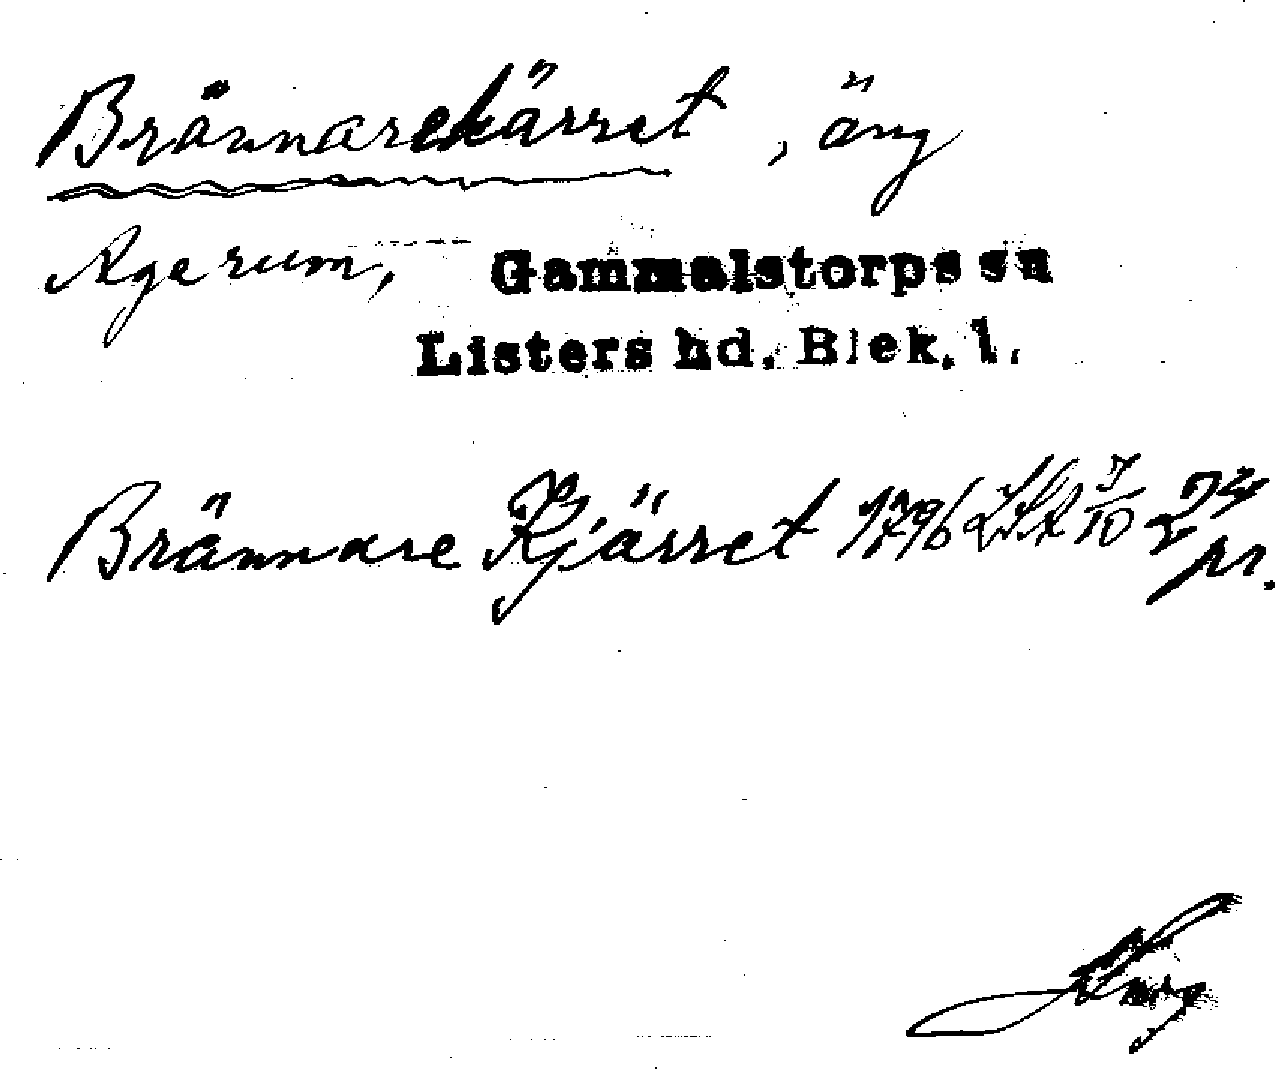 Brännarekärret, äng
Agerum, Gammalstorps sn
Listers hd. Blek. l.
Brännare Kjärret 1796 LSA 7/10 24
pr.